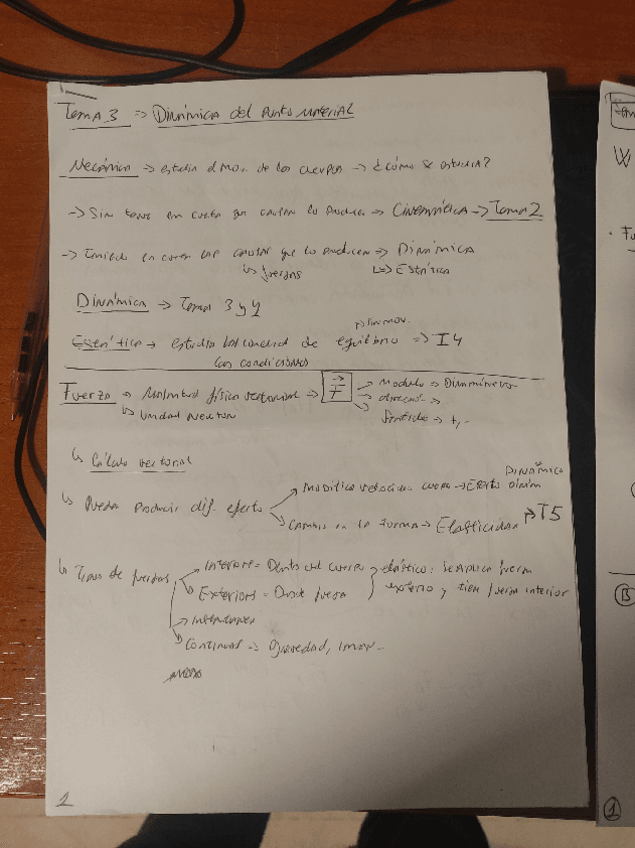 Tema 3 => Dinámica del Punto Material
Mecánica -> estudia el mov. de los cuerpos -> ¿cómo se estudia?
-> Sin tener en cuenta que causan lo produce -> Cinemática -> Tema 2
-> Teniendo en cuenta las causas que lo producen => Dinámica
↳ fuerzas ↳ Estática
Dinámica -> Tema 3 y 4
sin mov.
Estática -> estudia las de equilibrio => T4
las condiciones
Fuerza -> Magnitud física vectorial => F -> Modulo -> Dinamómetro
↳ Unidad Newton -> dirección ->
-> Sentido -> +,-
↳ Cálculo vectorial
Dinámico
↳ Pueden Producir dif. efecto -> Modifica velocidad cuerpo -> Efecto
-> Cambio en la forma -> Elasticidad -> T5
↳ Tipos de fuerzas -> Interiores = Dentro del cuerpo elástico: se aplica fuerza
-> Exteriores = Desde fuera exterior y tiene fuerza interior
-> Instantánea
-> Continuas -> Gravedad, iman..
1
①
B